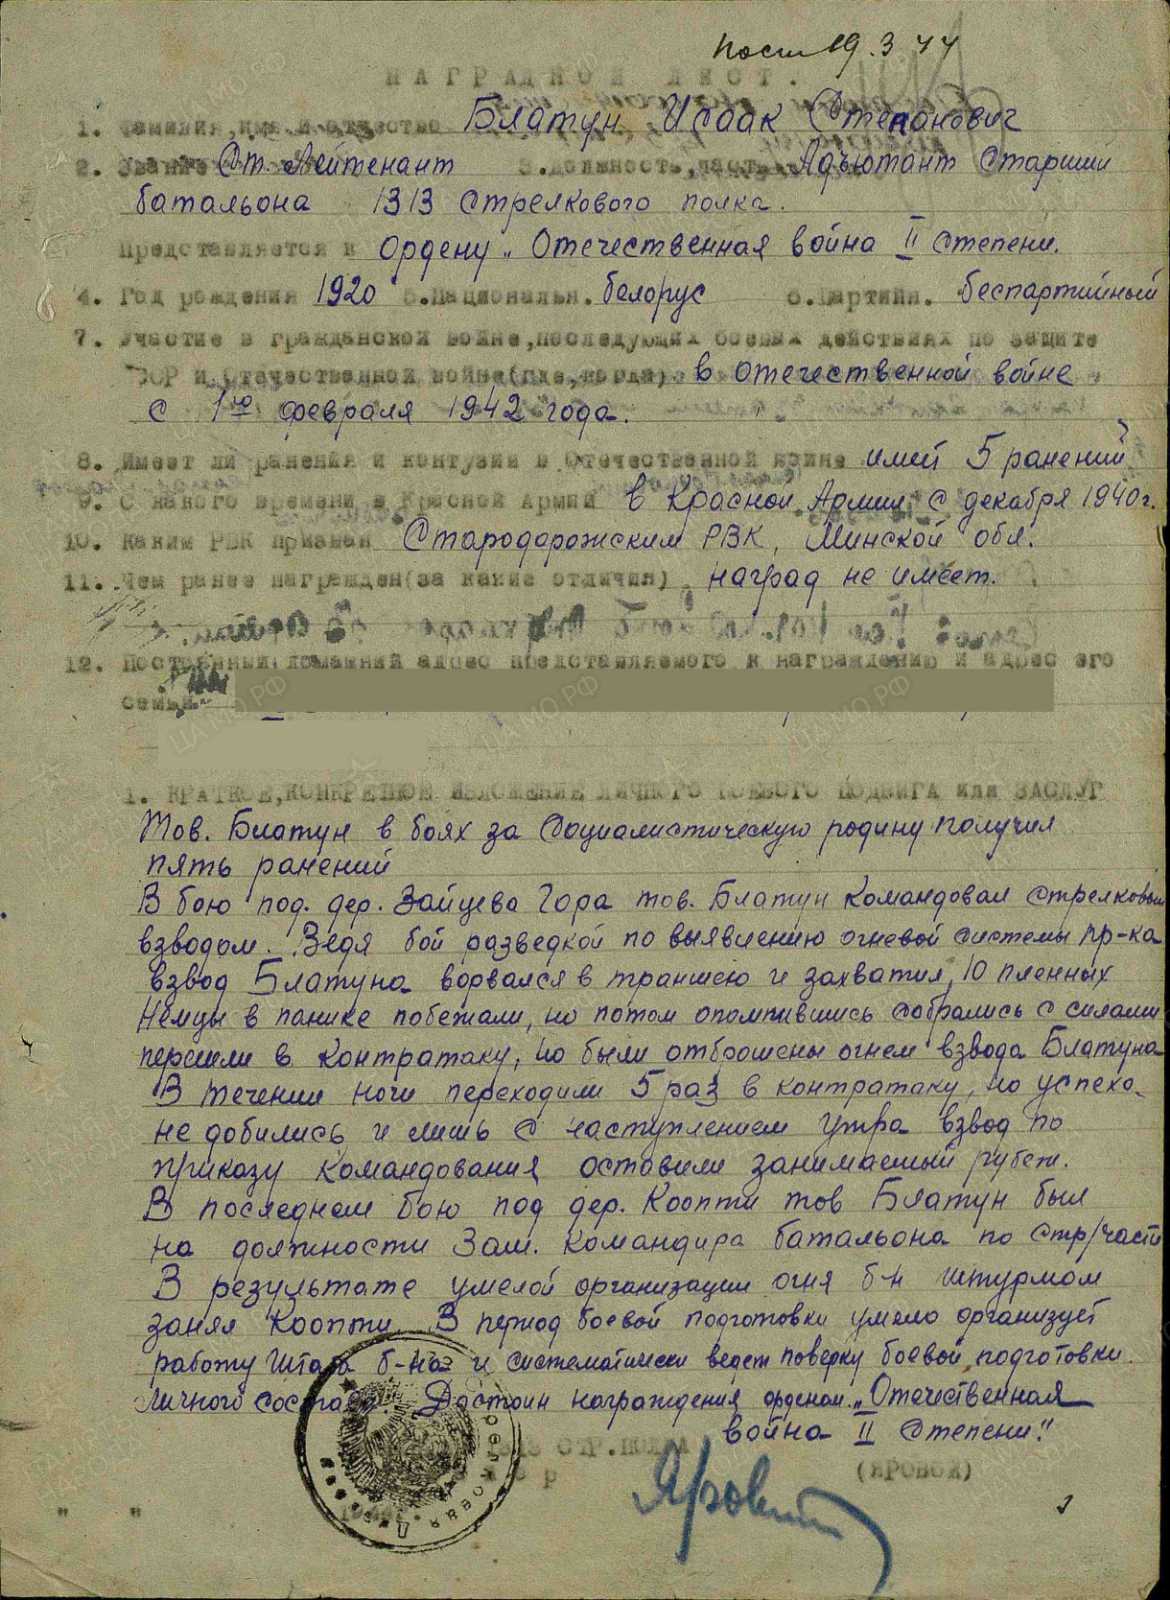 Пост 19.3.44
НАГРАДНОЙ ЛИСТ.
1. Фамилия, имя и отчество Блатун Исаак Степанович
2. Звание Ст. Лейтенант 3. Должность, часть Адъютант Старший
батальона 1313 стрелкового полка.
Представляется к ордену „Отечественная война II степени.
4. Год рождения 1920 5. Национальн. белорус 6. Партийн. беспартийный
7. Участие в гражданской войне, последующих боевых действиях по защите
СССР и Отечественной войне (где, когда) в отечественной войне
с 1го февраля 1942 года.
8. Имеет ли ранения и контузии в Отечественной войне имеет 5 ранений
9. С какого времени в Красной Армии в Красной Армии с декабря 1940 г.
10. Каким РВК призван Стародорожским РВК, Минской обл.
11. Чем ранее награжден (за какие отличия) наград не имеет.
12. Постоянный домашний адрес представляемого к награждению и адрес его
семьи
1. КРАТКОЕ, КОНКРЕТНОЕ ИЗЛОЖЕНИЕ ЛИЧНОГО БОЕВОГО ПОДВИГА или ЗАСЛУГ
Тов. Блатун в боях за Социалистическую родину получил
пять ранений
В бою под. дер. Зайцева Гора тов. Блатун командовал стрелковым
взводом. Ведя бой разведкой по выявлению огневой системы пр-ка
взвод Блатуна ворвался в траншею и захватил 10 пленных
Немцы в панике побежали, но потом опомнившись собрались с силами
перешли в контратаку, но были отброшены огнем взвода Блатуна
В течении ночи переходили 5 раз в контратаку, но успеха
не добились и лишь с наступлением утра взвод по
приказу командования оставили занимаемый рубеж.
В последнем бою под дер. Коопти тов Блатун был
на должности Зам. командира батальона по стр/части
В результате умелой организации огня б-н штурмом
занял Коопти. В период боевой подготовки умело организует
работу штаба б-на и систематически ведет поверку боевой подготовки
личного состава. Достоин награждения орденом „Отечественная
война II степени."
1313 СТР. ПОЛКА
(ЯРОВОЙ)